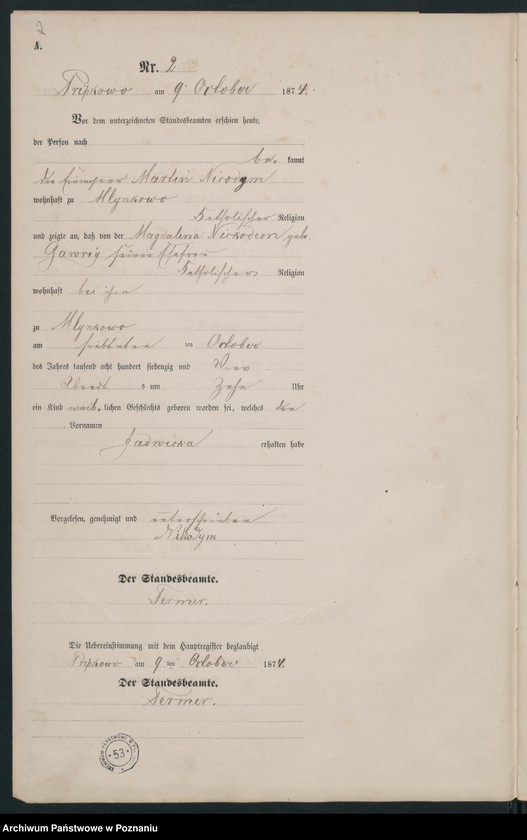 2
A.
Nr. 2
Pripkowo am 9 October 1874.
Vor dem unterzeichneten Standesbeamten erschien heute,
der Person nach
be. kannt
Martin Nicodym
wohnhaft zu Mlynkowo
katholischer Religion
und zeigte an, daß von der Magdalena Nickodem geb
seiner Ehefrau
katholischer Religion
wohnhaft bei ihm
zu Mlynkowo
am siebbeten ten October
des Jahres tausend acht hundert siebenzig und Vier
Abend s um Zehn Uhr
ein Kind weib. lichen Geschlechts geboren worden sei, welches den
Vornamen
Jadwicka erhalten habe
Vorgelesen, genehmigt und unterschrieben
Nikodym
Der Standesbeamte.
Fermer.
Die Uebereinstimmung mit dem Hauptregister beglaubigt
Pripkowo am 9 ten October 1874.
Der Standesbeamte.
Fermer.
53
Archiwum Państwowe w Poznaniu